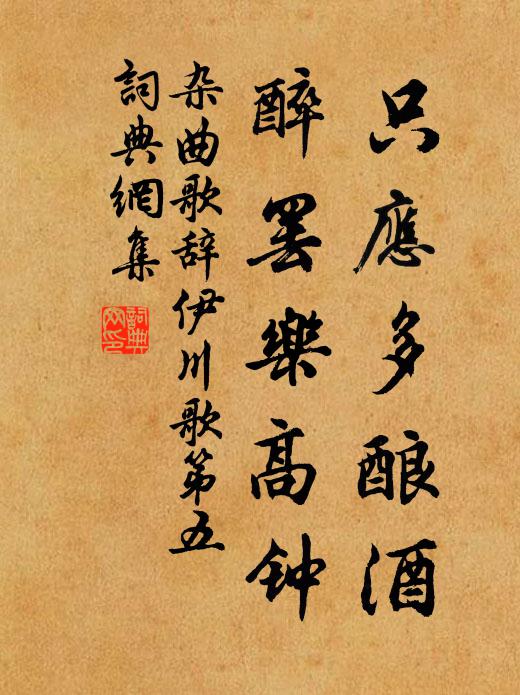 只應多酿酒
醉罢樂高钟
杂曲歌辞伊川歌第五
詞典網集
詞典網印